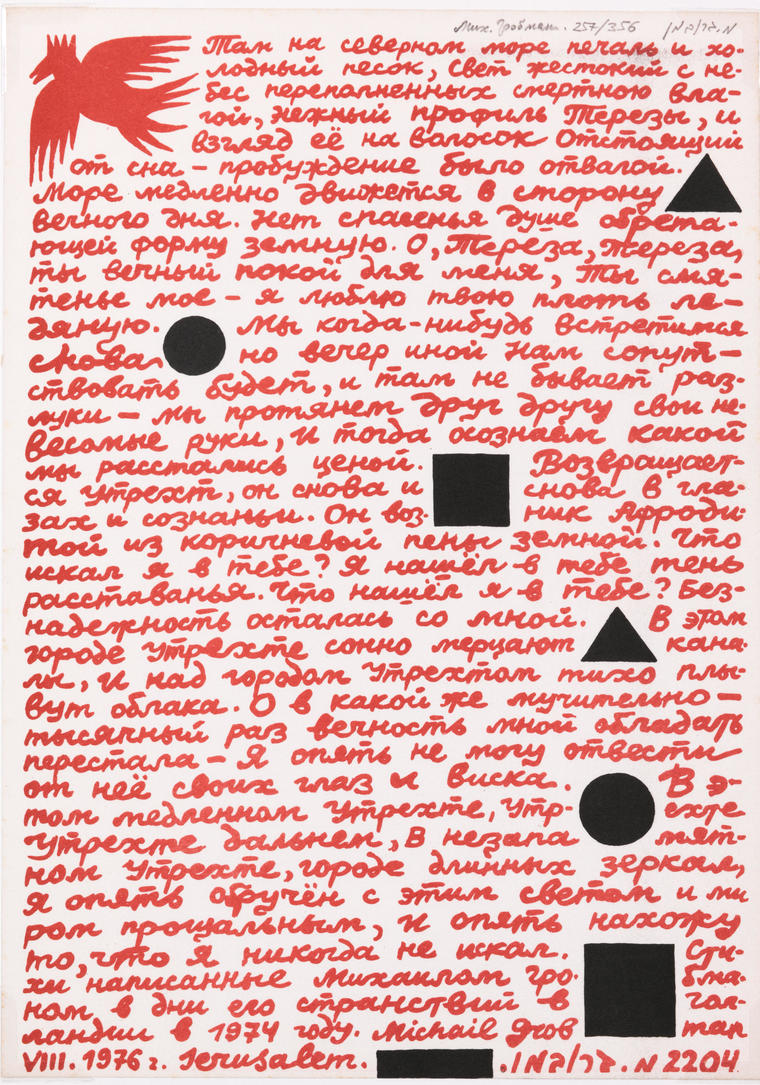 Мих. Гробман. 257/356 מ. גרובמן
Там на северном море печаль и хо-
лодный песок, свет жестокий с не-
бес переполненных смертною вла-
гой, нежный профиль Терезы, и
взгляд её на волосок отстоящий
от сна – пробуждение было отвагой.
Море медленно движется в сторону
вечного дня. Нет спасенья душе обрета-
ющей форму земную. О, Тереза, Тереза,
ты вечный покой для меня, ты смя-
тенье мое – я люблю твою плоть ле-
дяную. Мы когда-нибудь встретимся
снова но вечер иной нам сопут-
ствовать будет, и там не бывает раз-
луки – мы протянем друг другу свои не-
весомые руки, и тогда осознаём какой
мы расстались ценой. Возвращает-
ся Утрехт, он снова и снова в гла-
зах и сознаньи. Он воз- ник Афроди-
той из коричневой пены земной. Что
искал я в тебе? Я нашёл в тебе тень
расставанья. Что нашёл я в тебе? Без-
надежность осталась со мной. В этом
городе Утрехте сонно мерцают кана-
лы, и над городом Утрехтом тихо плы-
вут облака. О в какой же мучительно –
тысячный раз вечность мной обладать
перестала – Я опять не могу отвести
от неё своих глаз и виска. В э-
том медленном Утрехте, Утр- ехте
Утрехте дальнем, в незапа мят-
ном Утрехте, городе длинных зеркал,
я опять обручён с этим светом и ми
ром прощальным, и опять нахожу
то, что я никогда не искал. Сти-
хи написанные Михаилом Гро- бма-
ном в дни его странствий в Гол-
ландии в 1974 году. Michail Grob man
VIII. 1976 г. Jerusalem. .מ גרובמן 2204